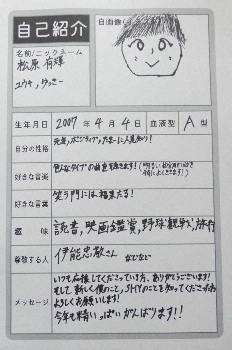 自己紹介
自画像
名前/ニックネーム
松原 有輝
ユウキ、ゆっきー
生年月日 2007年4月4日 血液型 A型
自分の性格 元気、ポジティブ、たまーに人見知り!
好きな音楽 色んなタイプの曲を聴きます!
好きな言葉 笑う門には福来たる!
趣味 読書、映画鑑賞、野球観戦、旅行
尊敬する人 伊能忠敬さん などなど
メッセージ いつも応援してくださっている方、ありがとうございます!
そして新しく僕のこと、
のことを知ってくださった方
よろしくお願いします!
今年も精いっぱいがんばります!!